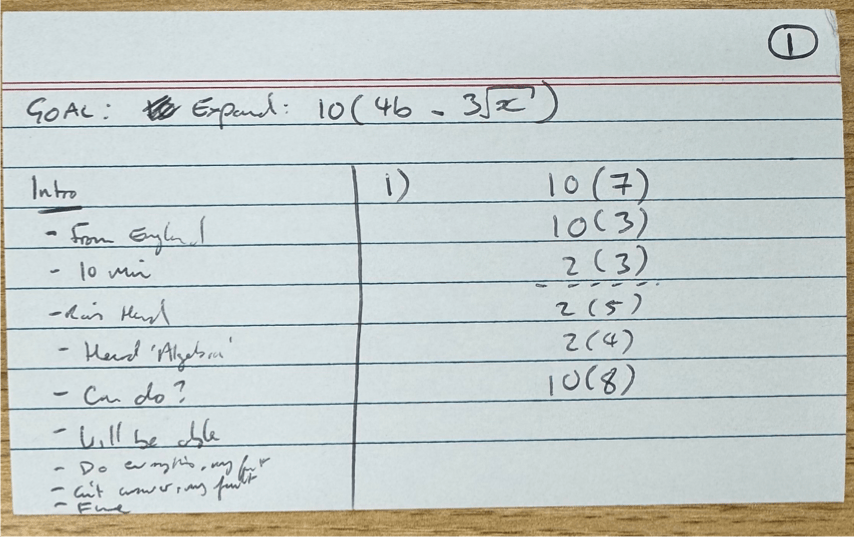 1
GOAL: Expand: 10(4b - 3√x)
Intro
- From England
- 10 min
- Rais Hand
- Heard 'Algebra'
- Can do?
- Will be able
- Do everything, my fault
- Can't answer, my fault
- Fine
i) 10(7)
10(3)
2(3)
2(5)
2(4)
10(8)